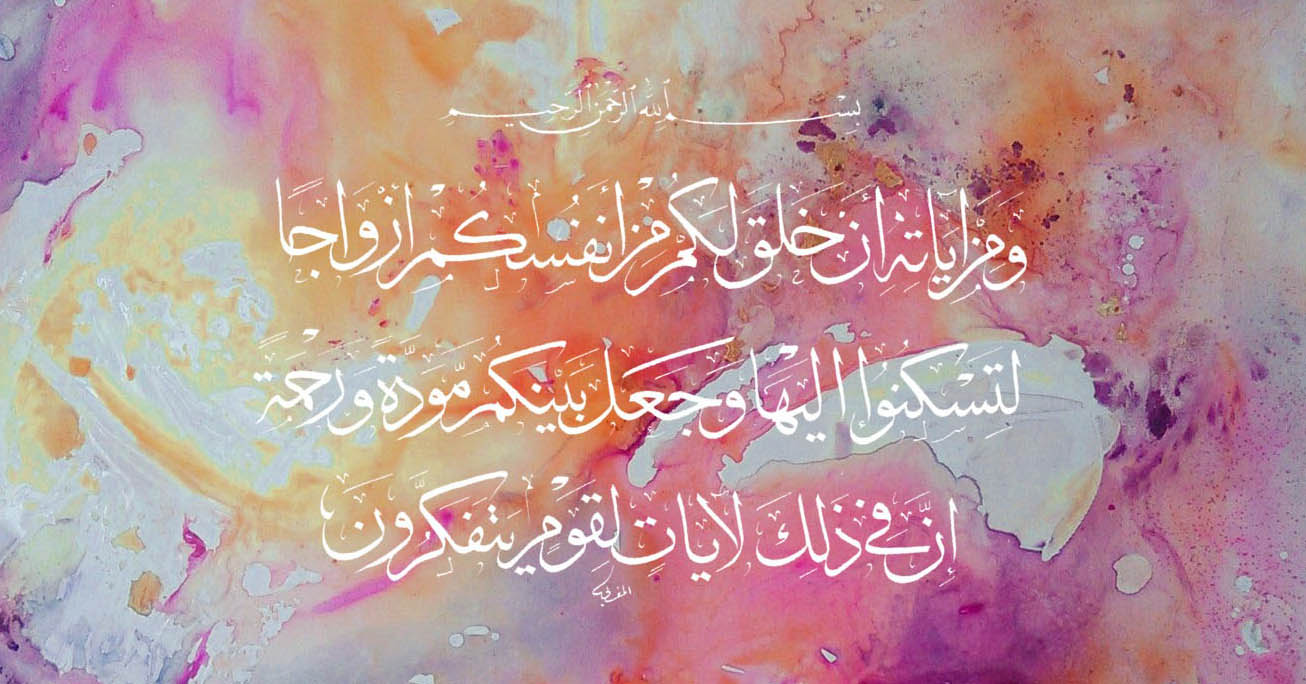 بِسْمِ ٱللَّهِ ٱلرَّحْمَٰنِ ٱلرَّحِيمِ
وَمِنْ اٰيَاتِهِ أَنْ خَلَقَ لَكُمْ مِنْ أَنْفُسِكُمْ اَزْوَاجًا
لِتَسْكُنُوٓا اِلَيْهَا وَجَعَلَ بَيْنَكُمْ مَّوَدَّةً وَرَحْمَةً
اِنَّ فِي ذٰلِكَ لَاٰيَاتٍ لِقَوْمٍ يَتَفَكَّرُونَ